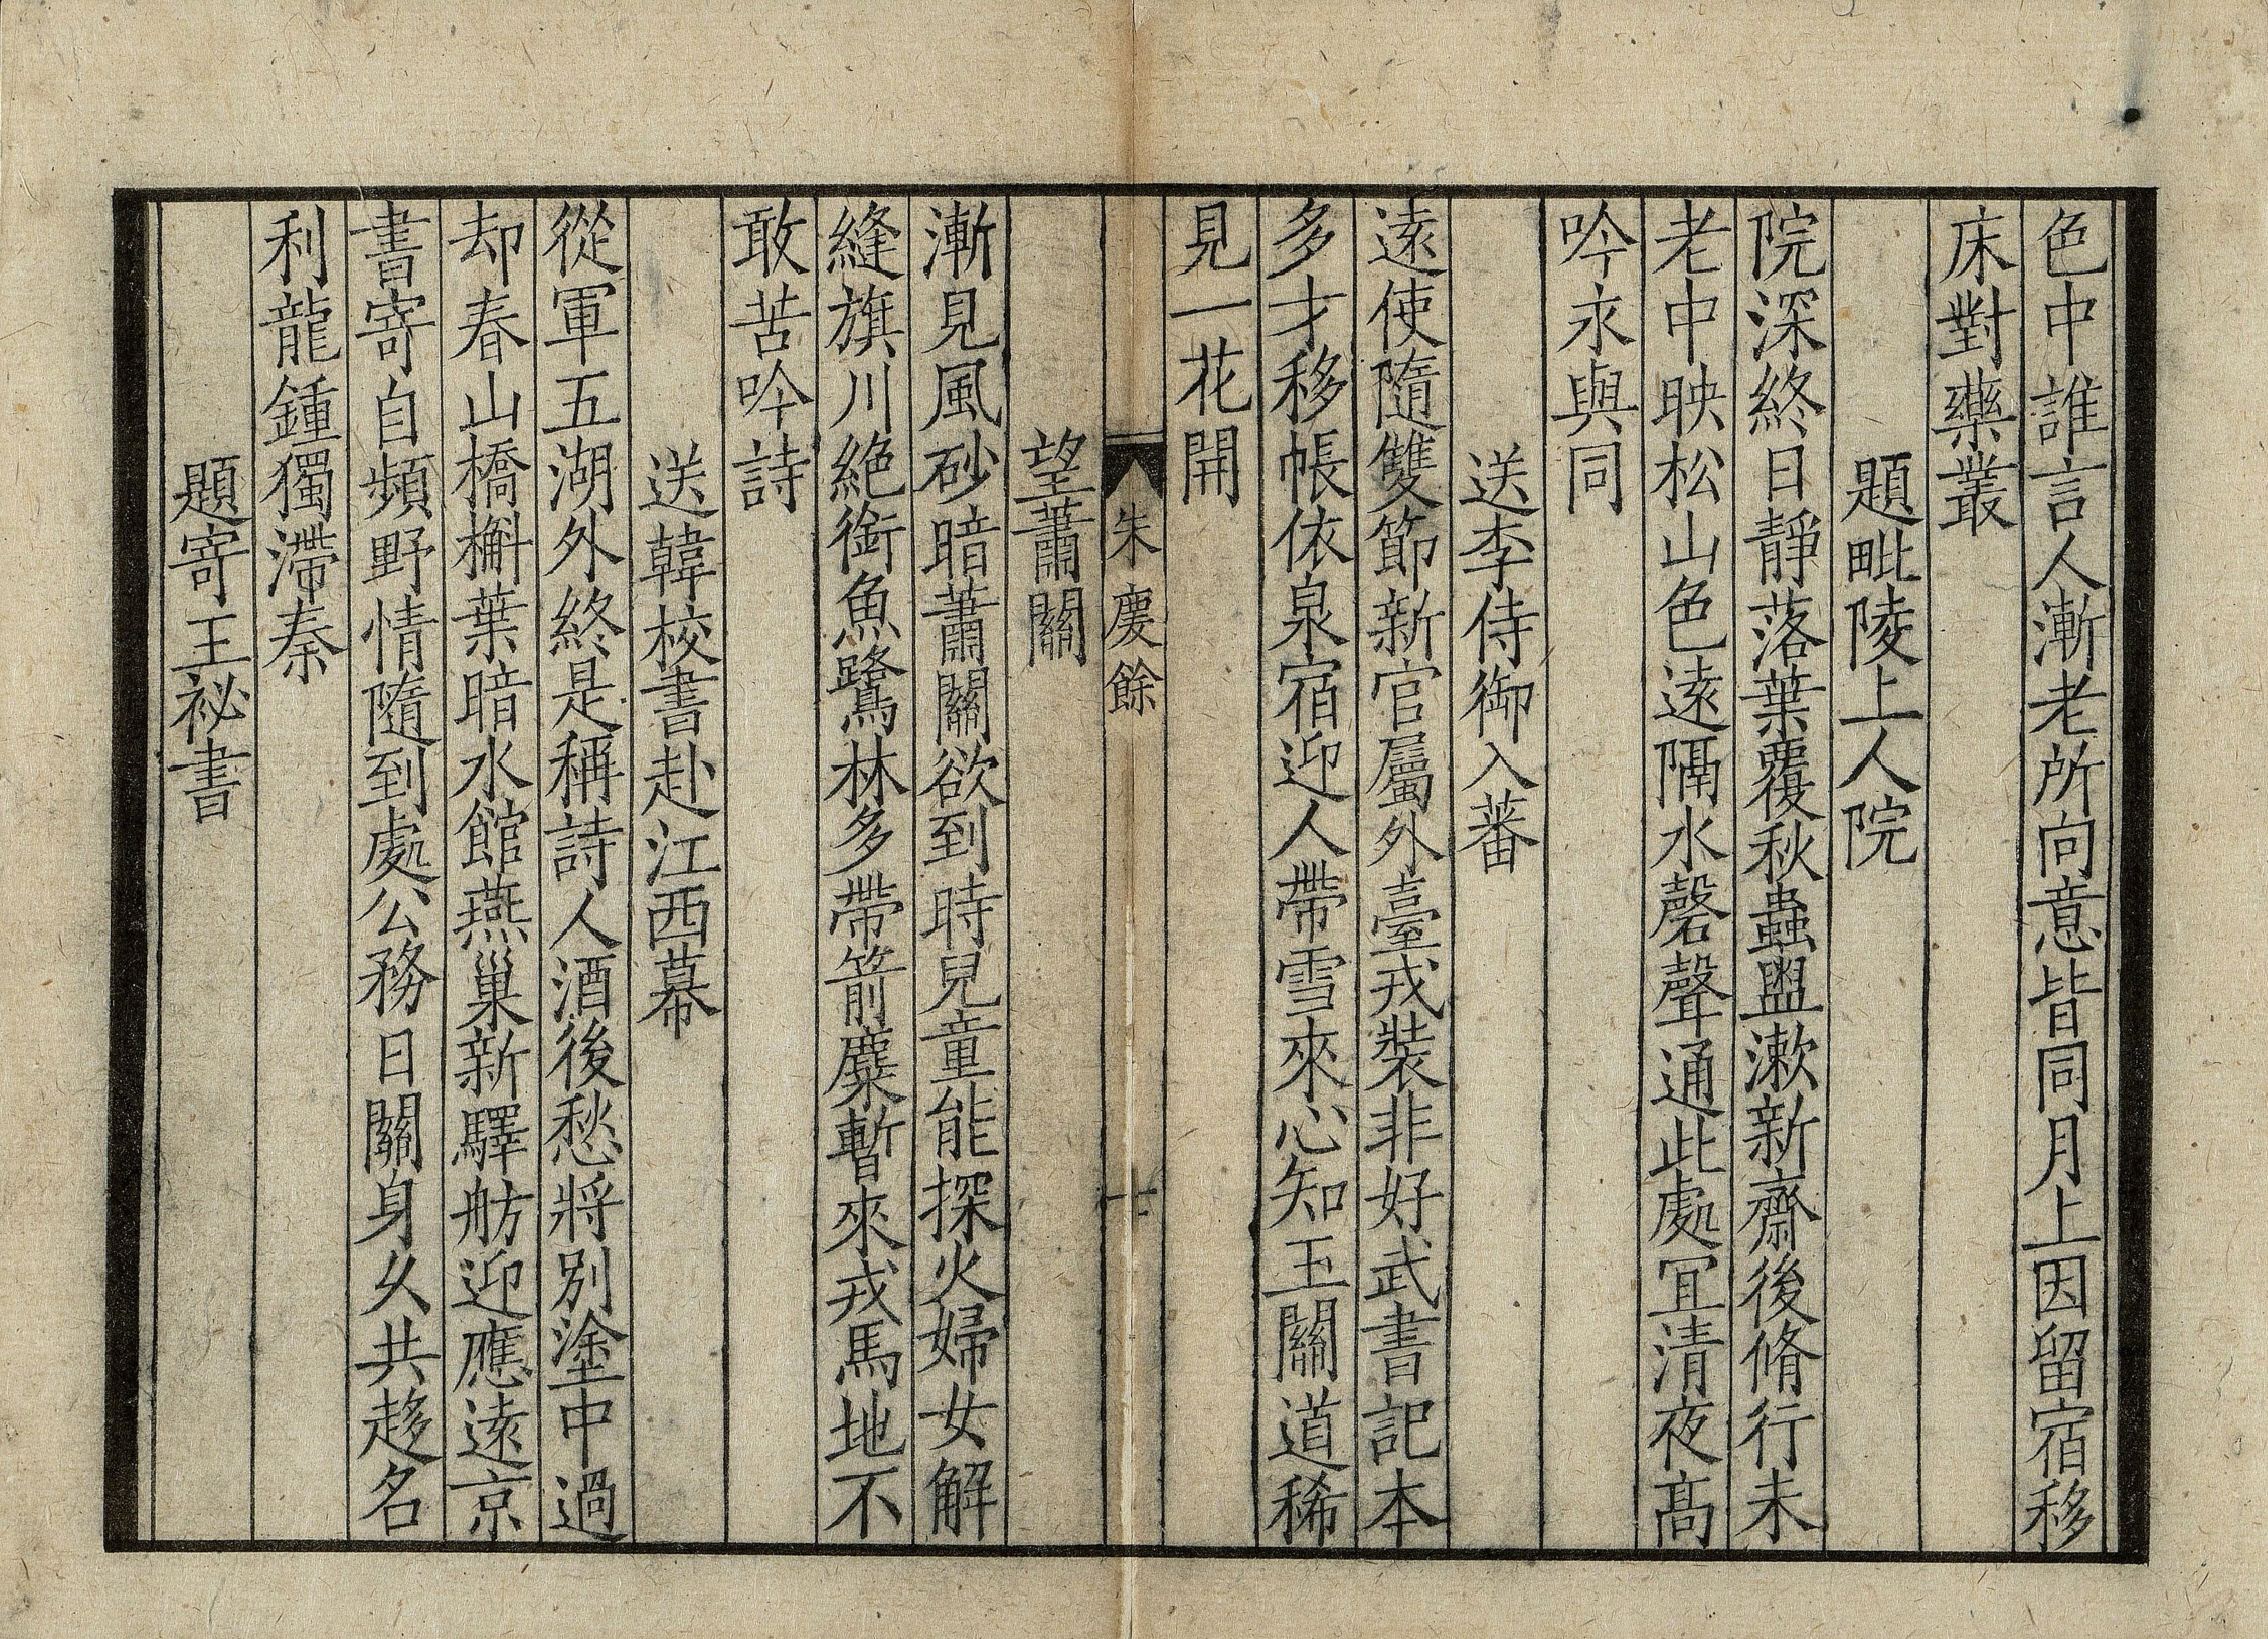 色中誰言人漸老所向意皆同月上因留宿移
床對藥叢
題毗陵上人院
院深終日靜落葉覆秋蟲盥漱新齋後脩行未
老中映松山色遠隔水磬聲通此處冝清夜髙
吟永與同
送李侍御入蕃
遠使隨雙節新官屬外臺戎裝非好武書記本
多才移帳依泉宿迎人帶雪來心知玉關道稀
見一花開
朱慶餘 十一
望蕭關
漸見風砂暗蕭關欲到時兒童能探火婦女解
縫旗川絶銜魚鷺林多帶箭麋暫來戎馬地不
敢苦吟詩
送韓校書赴江西幕
從軍五湖外終是稱詩人酒後愁將別塗中過
却春山橋槲葉暗水館燕巢新驛舫迎應遠京
書寄自頻野情隨到處公務日關身久共趍名
利龍鍾獨滯秦
題寄王祕書